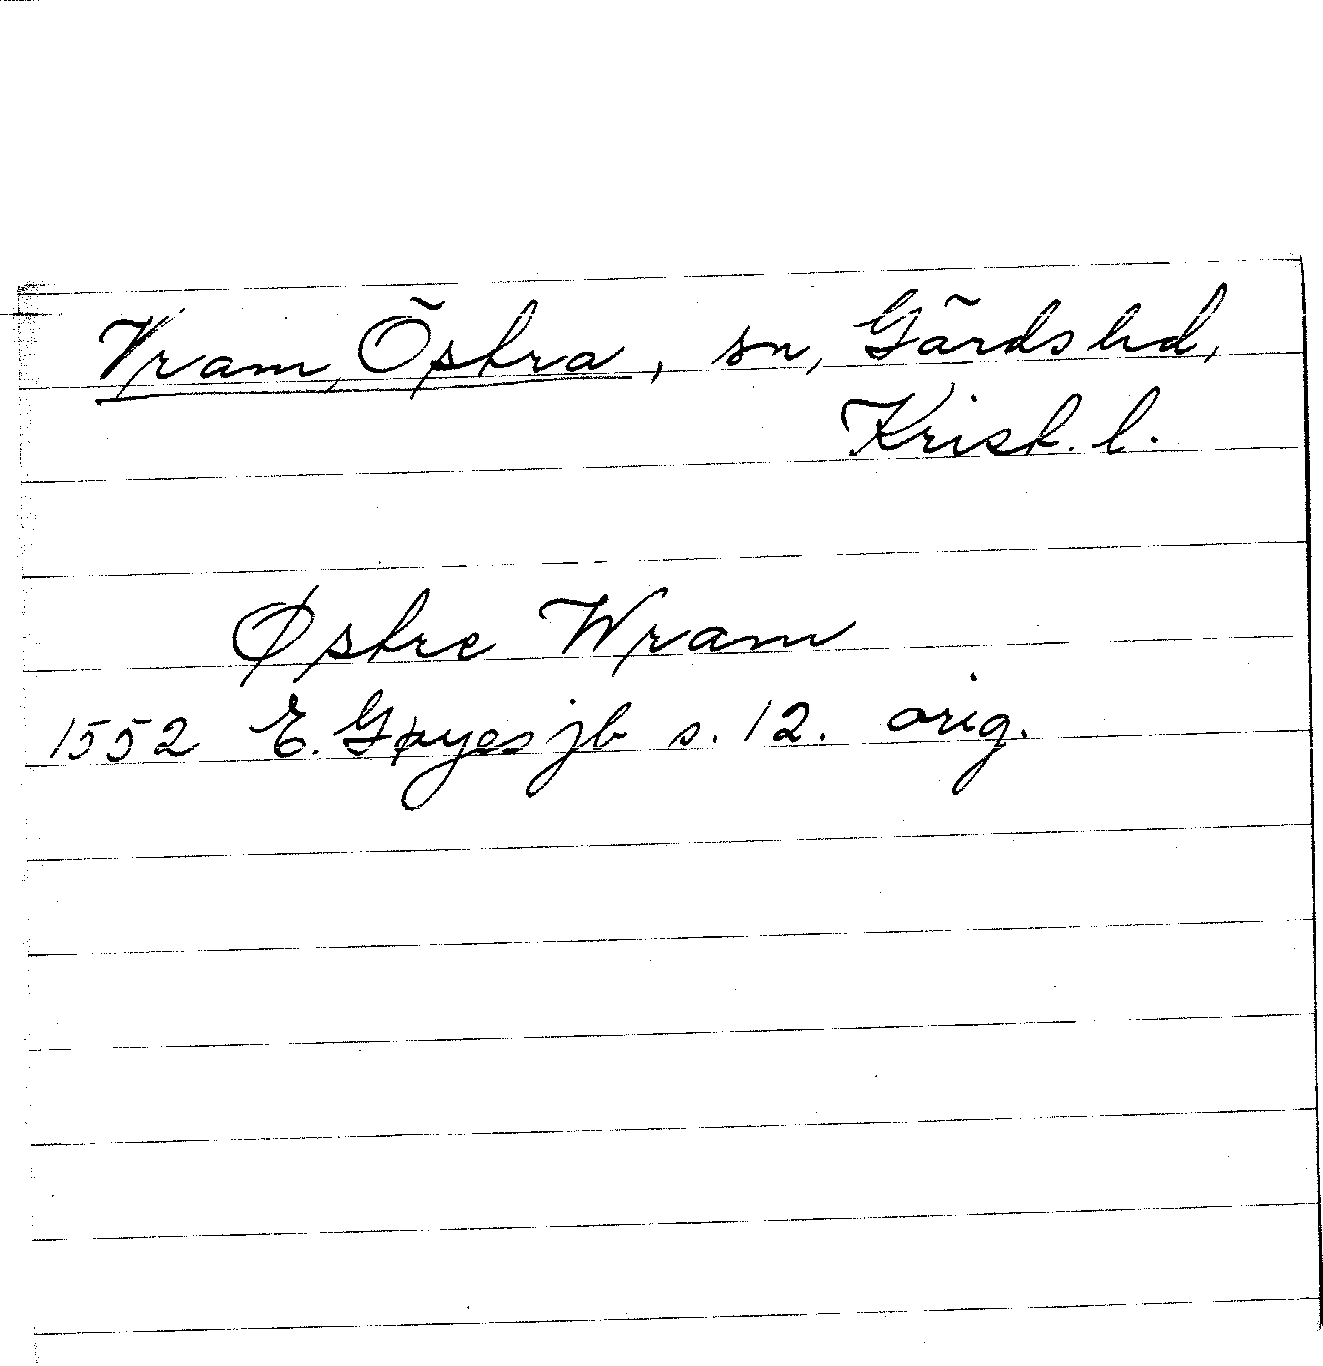 Vram, Östra, sn, Gärds hd,
Krist. l.
Østre Wram
1552 E. Gøyes jb s. 12. orig.